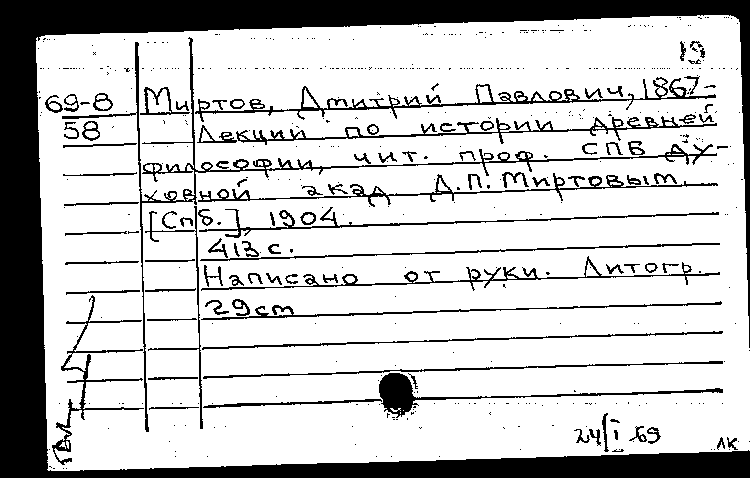 19
69-8 Миртов, Дмитрий Павлович, 1867-
58 Лекции по истории древней
философии, чит. проф. СПБ ду-
ховной акад Д.П. Миртовым.
[Спб.], 1904.
413 с.
Написано от руки. Литогр.
29cm
24/I 69
ЛК